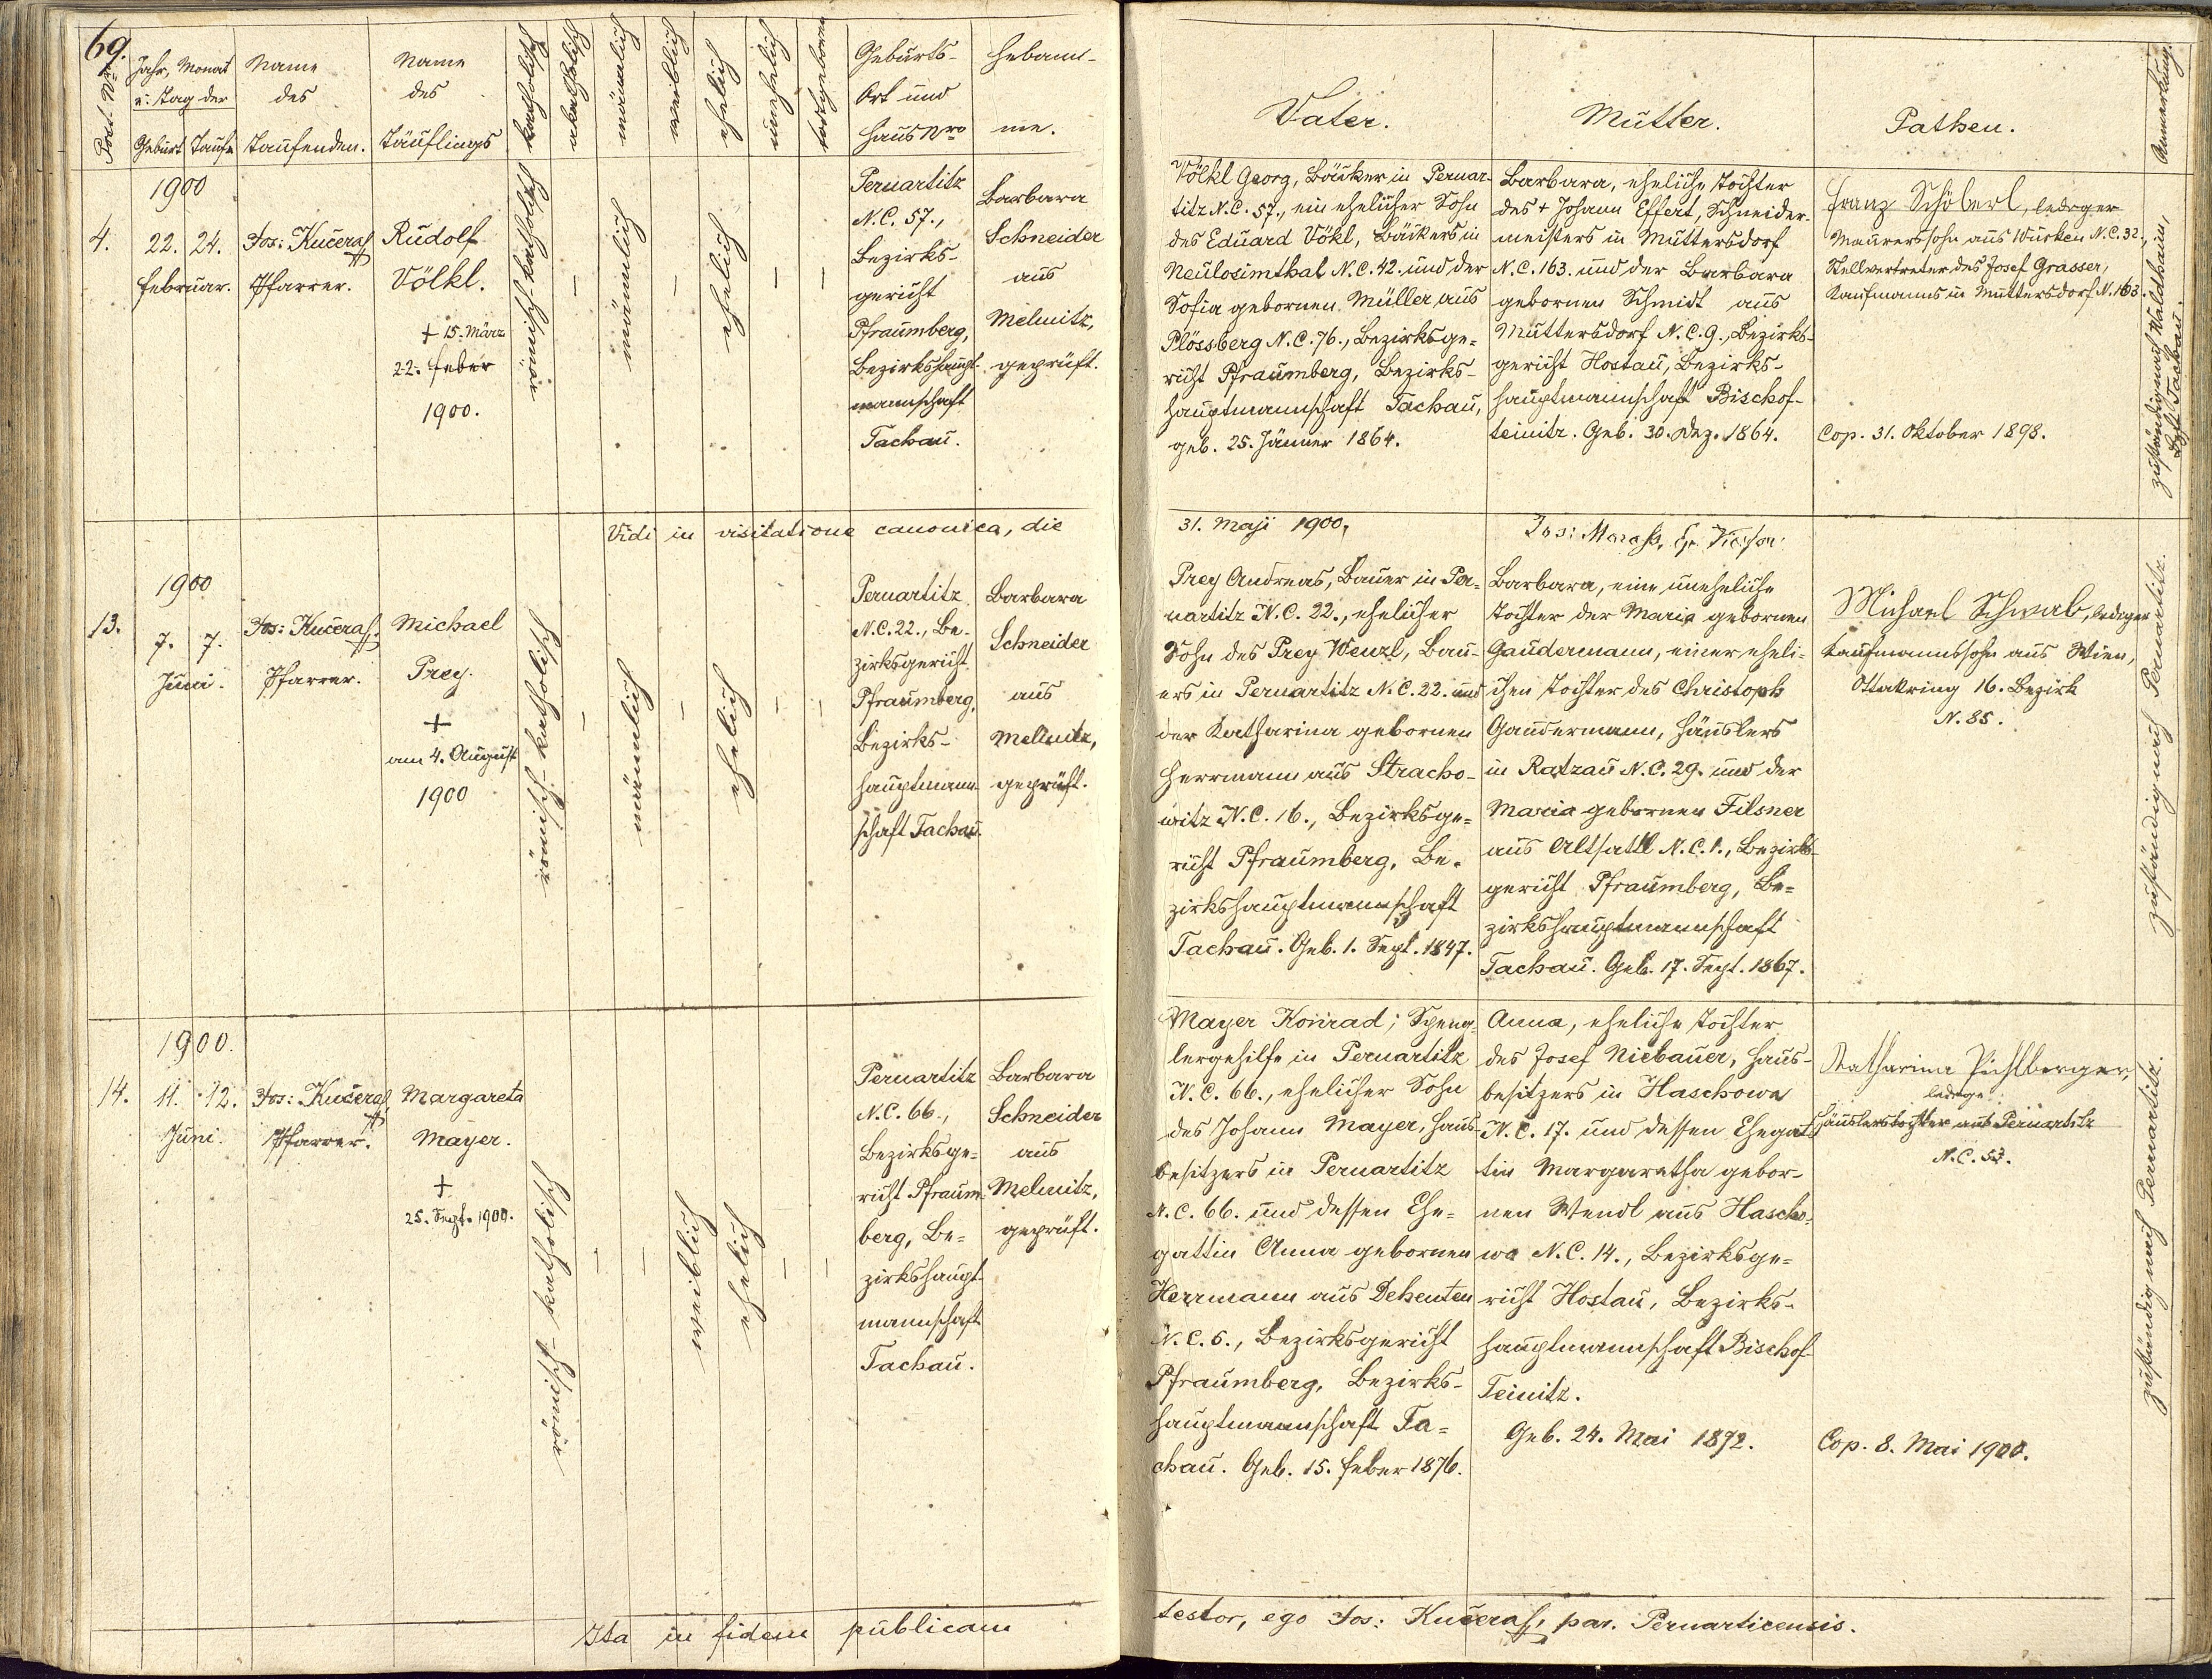 69.
Post. Nr.
Jahr, Monat
u: Tag der
Geburt Taufe
Name
des
Taufenden.
Name
des
Täuflings
katholisch
akatholisch
männlich
weiblich
ehelich
unehelich
todtgeboren
Geburts-
Ort und
Haus Nro
Hebam-
me.
Vater.
Mutter.
Pathen.
Anmerkung.
1900
4.
22. 24.
Februar.
Jos: Kučera
Pfarrer.
Rudolf
Völkl.
+ 15. März
22. Feber
1900.
römisch katholisch
–
männlich
–
ehelich
–
–
Pernartitz
N.C. 57.,
Bezirks-
gericht
Pfraumberg,
Bezirkshaupt-
mannschaft
Tachau.
Barbara
Schneider
aus
Melnitz,
geprüft.
Völkl Georg, Bäcker in Pernar-
titz N.C. 57., ein ehelicher Sohn
des Eduard Vökl, Bäckers in
Neulosimthal N.C. 42. und der
Sofia gebornen Müller aus
Plössberg N.C. 76., Bezirksge-
richt Pfraumberg, Bezirks-
hauptmannschaft Tachau,
geb. 25. Jänner 1864.
Barbara, eheliche Tochter
des + Johann Effert, Schneider-
meisters in Muttersdorf
N.C. 163. und der Barbara
gebornen Schmidt aus
Muttersdorf N.C. 9., Bezirks-
gericht Hostau, Bezirks-
hauptmannschaft Bischof-
teinitz. Geb. 30. Dez. 1864.
Franz Schöberl, lediger
Maurerssohn aus Wurken N.C. 32.,
Stellvertreter des Josef Grasser,
Kaufmanns in Muttersdorf N. 163.
Cop. 31. Oktober 1898.
zuständig nach Waldthurn,
Bzk Tachau.
Vidi in visitatione canonica, die
31. Maji 1900,
1900
13.
7. 7.
Juni.
Jos: Kučera
Pfarrer.
Michael
Prey.
+
am 4. August
1900
römisch-katholisch
–
männlich
–
ehelich
–
–
Pernartitz
N.C. 22., Be-
zirksgericht
Pfraumberg,
Bezirks-
hauptmann-
schaft Tachau.
Barbara
Schneider
aus
Mellnitz,
geprüft.
Prey Andreas, Bauer in Per-
nartitz N.C. 22., ehelicher
Sohn des Prey Wenzl, Bau-
ers in Pernartitz N.C. 22. und
der Katharina gebornen
Herrmann aus Stracho-
witz N.C. 16., Bezirksge-
richt Pfraumberg, Be-
zirkshauptmannschaft
Tachau. Geb. 1. Sept. 1847.
Barbara, eine uneheliche
Tochter der Maria gebornen
Gaudermann, einer eheli-
chen Tochter des Christoph
Gaudermann, Häuslers
in Ratzau N.C. 29. und der
Maria gebornen Filsner
aus Altsattl N.C. 1., Bezirks-
gericht Pfraumberg, Be-
zirkshauptmannschaft
Tachau. Geb. 17. Sept. 1867.
Michael Schwab, lediger
Kaufmannssohn aus Wien,
Ottakring 16. Bezirk
N. 85.
zuständig nach Pernartitz.
1900.
14.
11. 12.
Juni.
Jos: Kučera
Pfarrer.
Margareta
Mayer.
+
25. Sept. 1900.
römisch-katholisch
–
–
weiblich
ehelich
–
–
Pernartitz
N.C. 66.,
Bezirksge-
richt Pfraum-
berg, Be-
zirkshaupt-
mannschaft
Tachau.
Barbara
Schneider
aus
Melnitz,
geprüft.
Mayer Konrad; Speng-
lergehilfe in Pernartitz
N.C. 66., ehelicher Sohn
des Johann Mayer, Haus-
besitzers in Pernartitz
N.C. 66. und dessen Ehe-
gattin Anna gebornen
Herrmann aus Dehenten
N.C. 6., Bezirksgericht
Pfraumberg, Bezirks-
hauptmannschaft Ta-
chau. Geb. 15. Feber 1876.
Anna, eheliche Tochter
des Josef Niebauer, Haus-
besitzers in Haschowa
N.C. 17. und dessen Ehegat-
tin Margaretha gebor-
nen Wendl aus Hascho-
wa N.C. 14., Bezirksge-
richt Hostau, Bezirks-
hauptmannschaft Bischof-
Teinitz.
Geb. 24. Mai 1872.
Katharina Pichlberger,
ledige
Häuslerstochter aus Pernartitz
N.C. 53.
Cop. 8. Mai 1900.
zuständig nach Pernartitz.
Ita in fidem publicam
testor, ego Jos: Kučera, par. Pernarticensis.